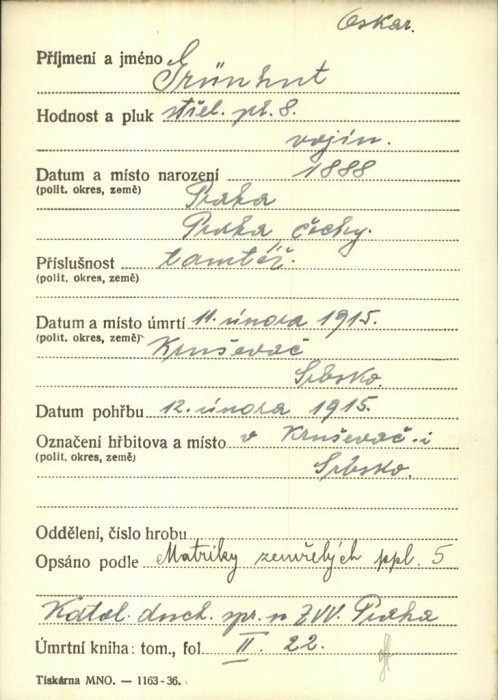 Oskar.
Příjmení a jméno Grünhut
Hodnost a pluk střel. pl. 8.
vojín.
Datum a místo narození 1888
(polit. okres, země) Praha
Praha, čechy.
Příslušnost tamtéž.
(polit. okres, země)
Datum a místo úmrtí 11. února 1915.
(polit. okres, země) Kruševač
Srbsko.
Datum pohřbu 12. února 1915.
Označení hřbitova a místo v Kruševač-i
(polit. okres, země) Srbsko.
Oddělení, číslo hrobu
Opsáno podle Matriky zemřelých ppl. 5
Katol. duch. spr. u ZVV. Praha
Úmrtní kniha: tom., fol. II. 22.
Tiskárna MNO. — 1163-36.